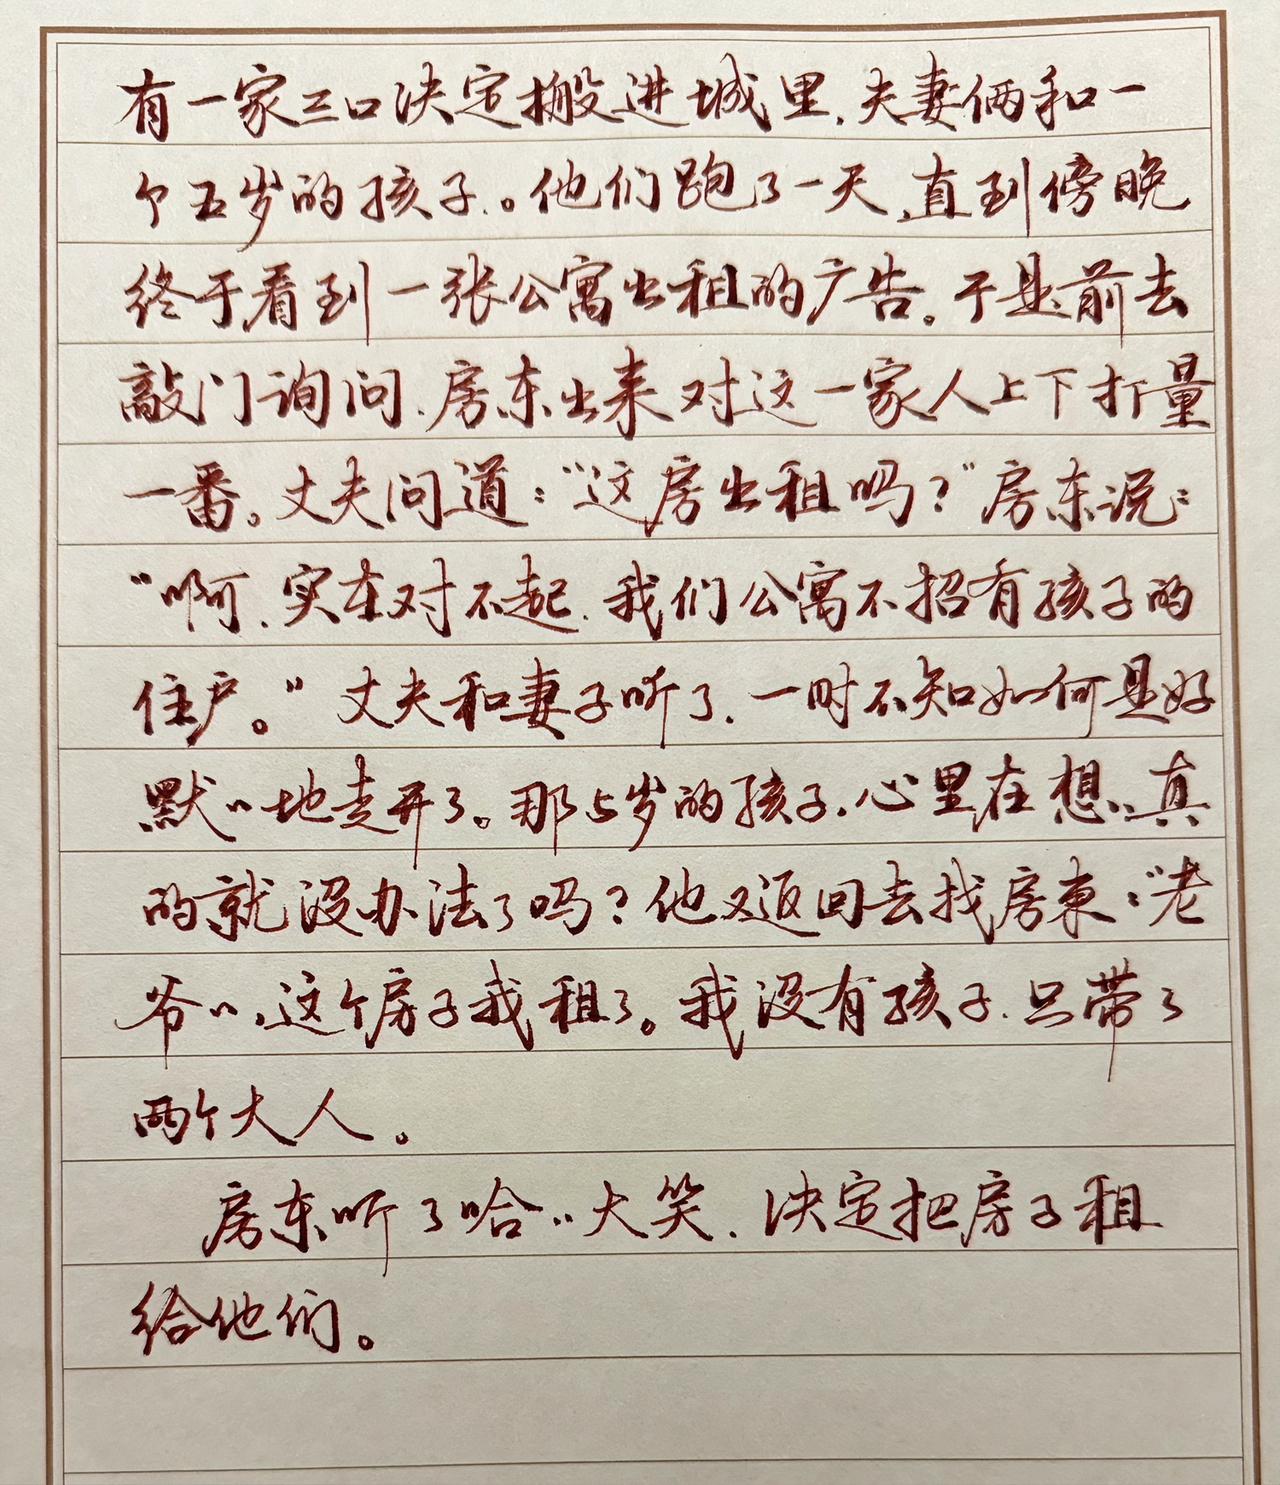 有一家三口决定搬进城里，夫妻俩和一
个五岁的孩子。他们跑了一天，直到傍晚
终于看到一张公寓出租的广告。于是前去
敲门询问，房东出来对这一家人上下打量
一番。丈夫问道：“这房出租吗？”房东说：
“啊，实在对不起，我们公寓不招有孩子的
住户。”丈夫和妻子听了，一时不知如何是好
默〃地走开了。那5岁的孩子，心里在想，真
的就没办法了吗？他又返回去找房東：“老
爷〃，这个房子我租了。我没有孩子，只带了
两个大人。
房东听了哈〃大笑，决定把房子租
给他们。